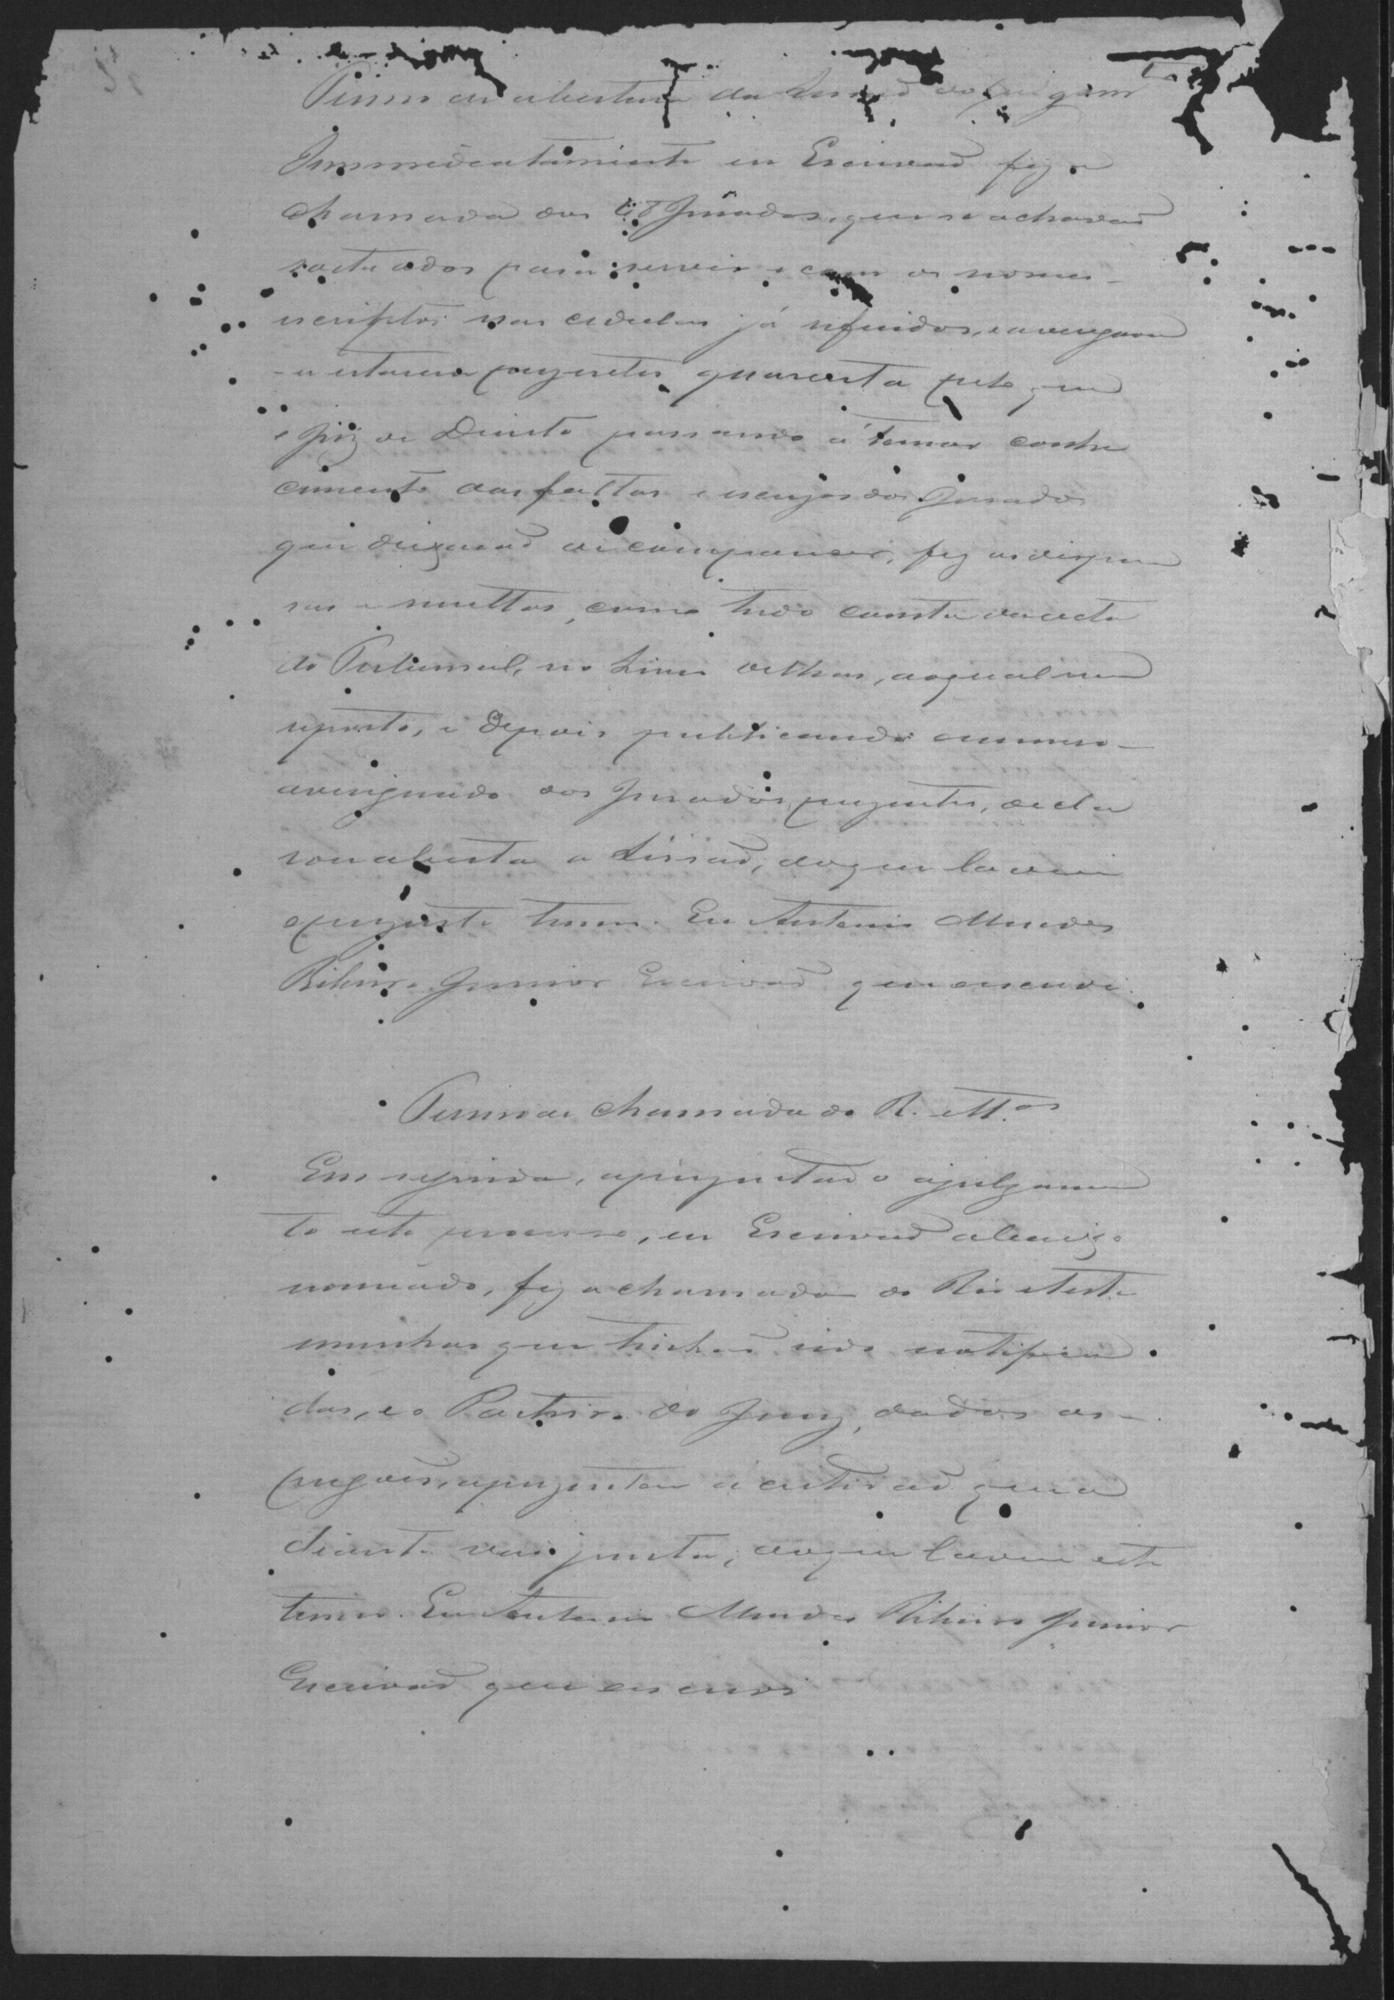 Termo de abertura da Sessão do julgam.to
Immediatamente eu Escrivaõ fiz a
chamada dos 48 Jurados, que se achavaõ
sorteados para servir e com os nomes
escriptos nas cedulas já referidas, e averigou-
se estarem prezentes quarenta pelo que
o Juiz de Direito passando á tomar conhe
cimento das faltas e escuzas dos Jurados
que deixaraõ de comparecer, fez as dispen
sas e multas, como tudo consta da acta
do Tribunal, no Livro dellas, ao qual me
reporto, e depois publicando o numero
averiguado dos Jurados prezentes, decla
rou aberta a Sessaõ, do que lavrei
o prezente termo. Eu Antonio Mendes
Ribeiro Junior Escrivaõ que escrevi.
Termo de chamada do R. e tt.as
Em seguida, aprezentado a julgamen
to este processo, eu Escrivaõ abaixo
nomeado, fiz a chamada do Réo e teste
munhas que tinhaõ sido notifica
das, e o Porteiro do Jury, dados os
pregões, aprezentou a certidaõ que a
diante vai junta, do que lavrei este
termo. Eu Antonio Mendes Ribeiro Junior
Escrivaõ que escrevi